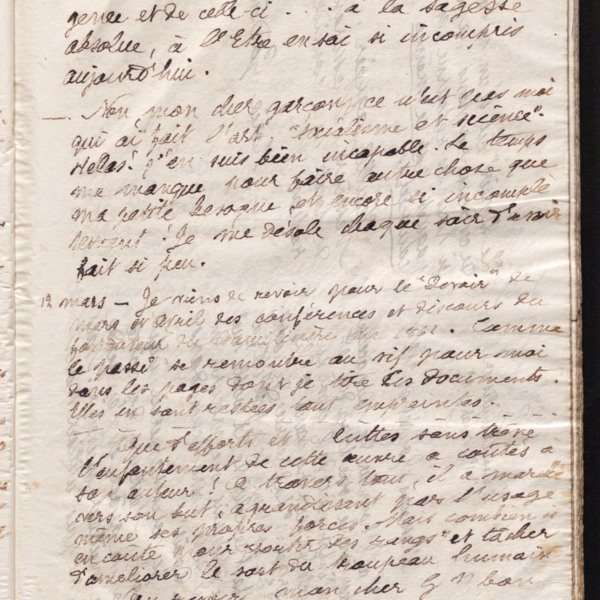 gence et de celle-ci . . . à la sagesse
absolue, à l'Etre en soi si incompris
aujourd'hui.
— Non, mon cher garçon, ce n'est pas moi
qui ai fait l'art. "Socialisme et science".
Hélas! J'en suis bien incapable. Le temps
me manque pour faire autre chose que
ma petite besogne et encore si incomplè
tement! Je me désole chaque soir d'avoir
fait si peu.
12 mars — Je viens de revoir pour le "Devoir" de
mars et avril des conférences et discours du
fondateur du Familistère en 1861. Comme
le passé se remontre au vif pour moi
dans les pages dont je tire ces documents.
Elles en sont restées tout empreintes.
Que d'efforts et de luttes sans trève
l'enfantement de cette œuvre a coûtés à
son auteur! A travers tout, il a marché
vers son but, agrandissant par l'usage
même ses propres forces. Mais combien il
en coûte pour sortir des rangs et tâcher
d'améliorer le sort du troupeau humain
mon cher bon